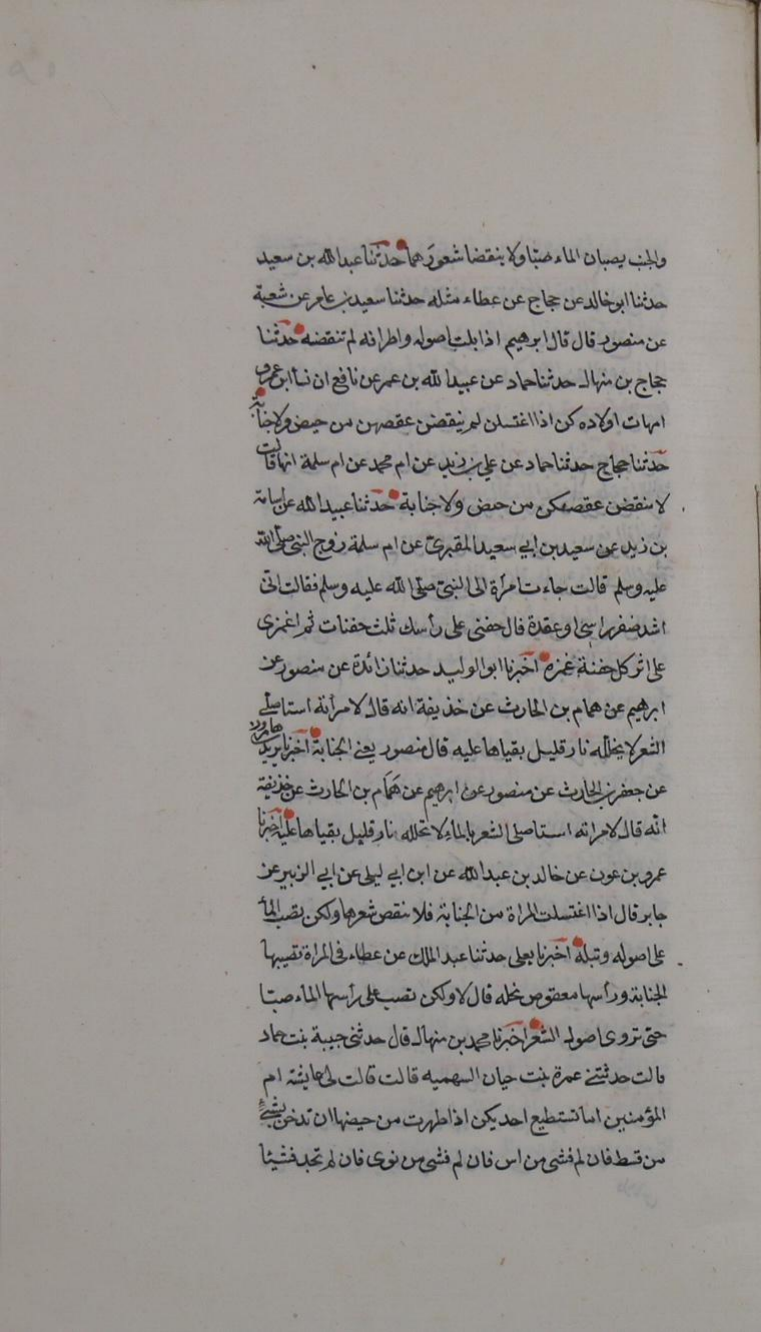 والجنب يصبان الماء صبّا ولا ينقضا شعورَهما حدثنا عبد الله بن سعيد
حدثنا ابو خالد عن حجاج عن عطاء مثله حدثنا سعيد بن عامر عن شعبة
عن منصور قال قال ابرهيم اذا بلت اصوله واطرافه لم تنقضه حدثنا
حجاج بن منهال حدثنا حماد عن عبيد الله بن عمر عن نافع ان نساء ابن عمر و
امهات اولاده كن اذا اغتسلن لم ينقضن عقصهن من حيض ولا جنابة
حدثنا حجاج حدثنا حماد عن علي بن زيد عن ام محمد عن ام سلمة انها قالت
لا تنقضن عقصكن من حيض ولا جنابة حدثنا عبيد الله عن اسامة
بن زيد عن سعيد بن ابي سعيد المقبري عن ام سلمة زوج النبي صلى الله
عليه وسلم قالت جاءت امرأة الى النبي صلى الله عليه وسلم فقالت اني
اشد ضفر راسي او عقدة قال حفني على رأسك ثلث حفنات ثم اغمزى
على اثر كل حفنة غمزه اخبرنا ابو الوليد حدثنا زائدة عن منصور عن
ابرهيم عن همام بن الحارث عن حذيفة انه قال لامرأته استاصلي
الشعر لا يخلله نار قليل بقياها عليه قال منصور يعني الجنابة اخبرنا يزيد
هارون
عن جعفر بن الحارث عن منصور عن ابرهيم عن همَام بن الحارث عن حذيفة
انه قال لامراته استاصلى الشعر بالماءِ لا تخلله نار قليل بقياها عليه اخبرنا
عمرو بن عون عن خالد بن عبد الله عن ابن ابي ليلى عن ابي الزبير عن
جابر قال اذا اغتسلت المراة من الجنابة فلا تنقض شعرها ولكن تصب الماء
على اصوله وتبله اخبرنا يعلى حدثنا عبد الملك عن عطاء فى المراة تصيبها
الجنابة ورأسها معقوص تحله قال لا ولكن تصب على رأسها الماء صبّا
حتى تروى اصول الشعر اخبرنا محمد بن منهال قال حدثتنى حبيبة بنت حماد
قالت حدثتني عمرة بنت حيان السهميه قالت قالت لى عايشة ام
المؤمنين اما تستطيع احديكن اذا طهرت من حيضها ان تدخن بشئ
من قسط فان لم فشى من اس فان لم فشى من نوى فان لم تجد فشيئا